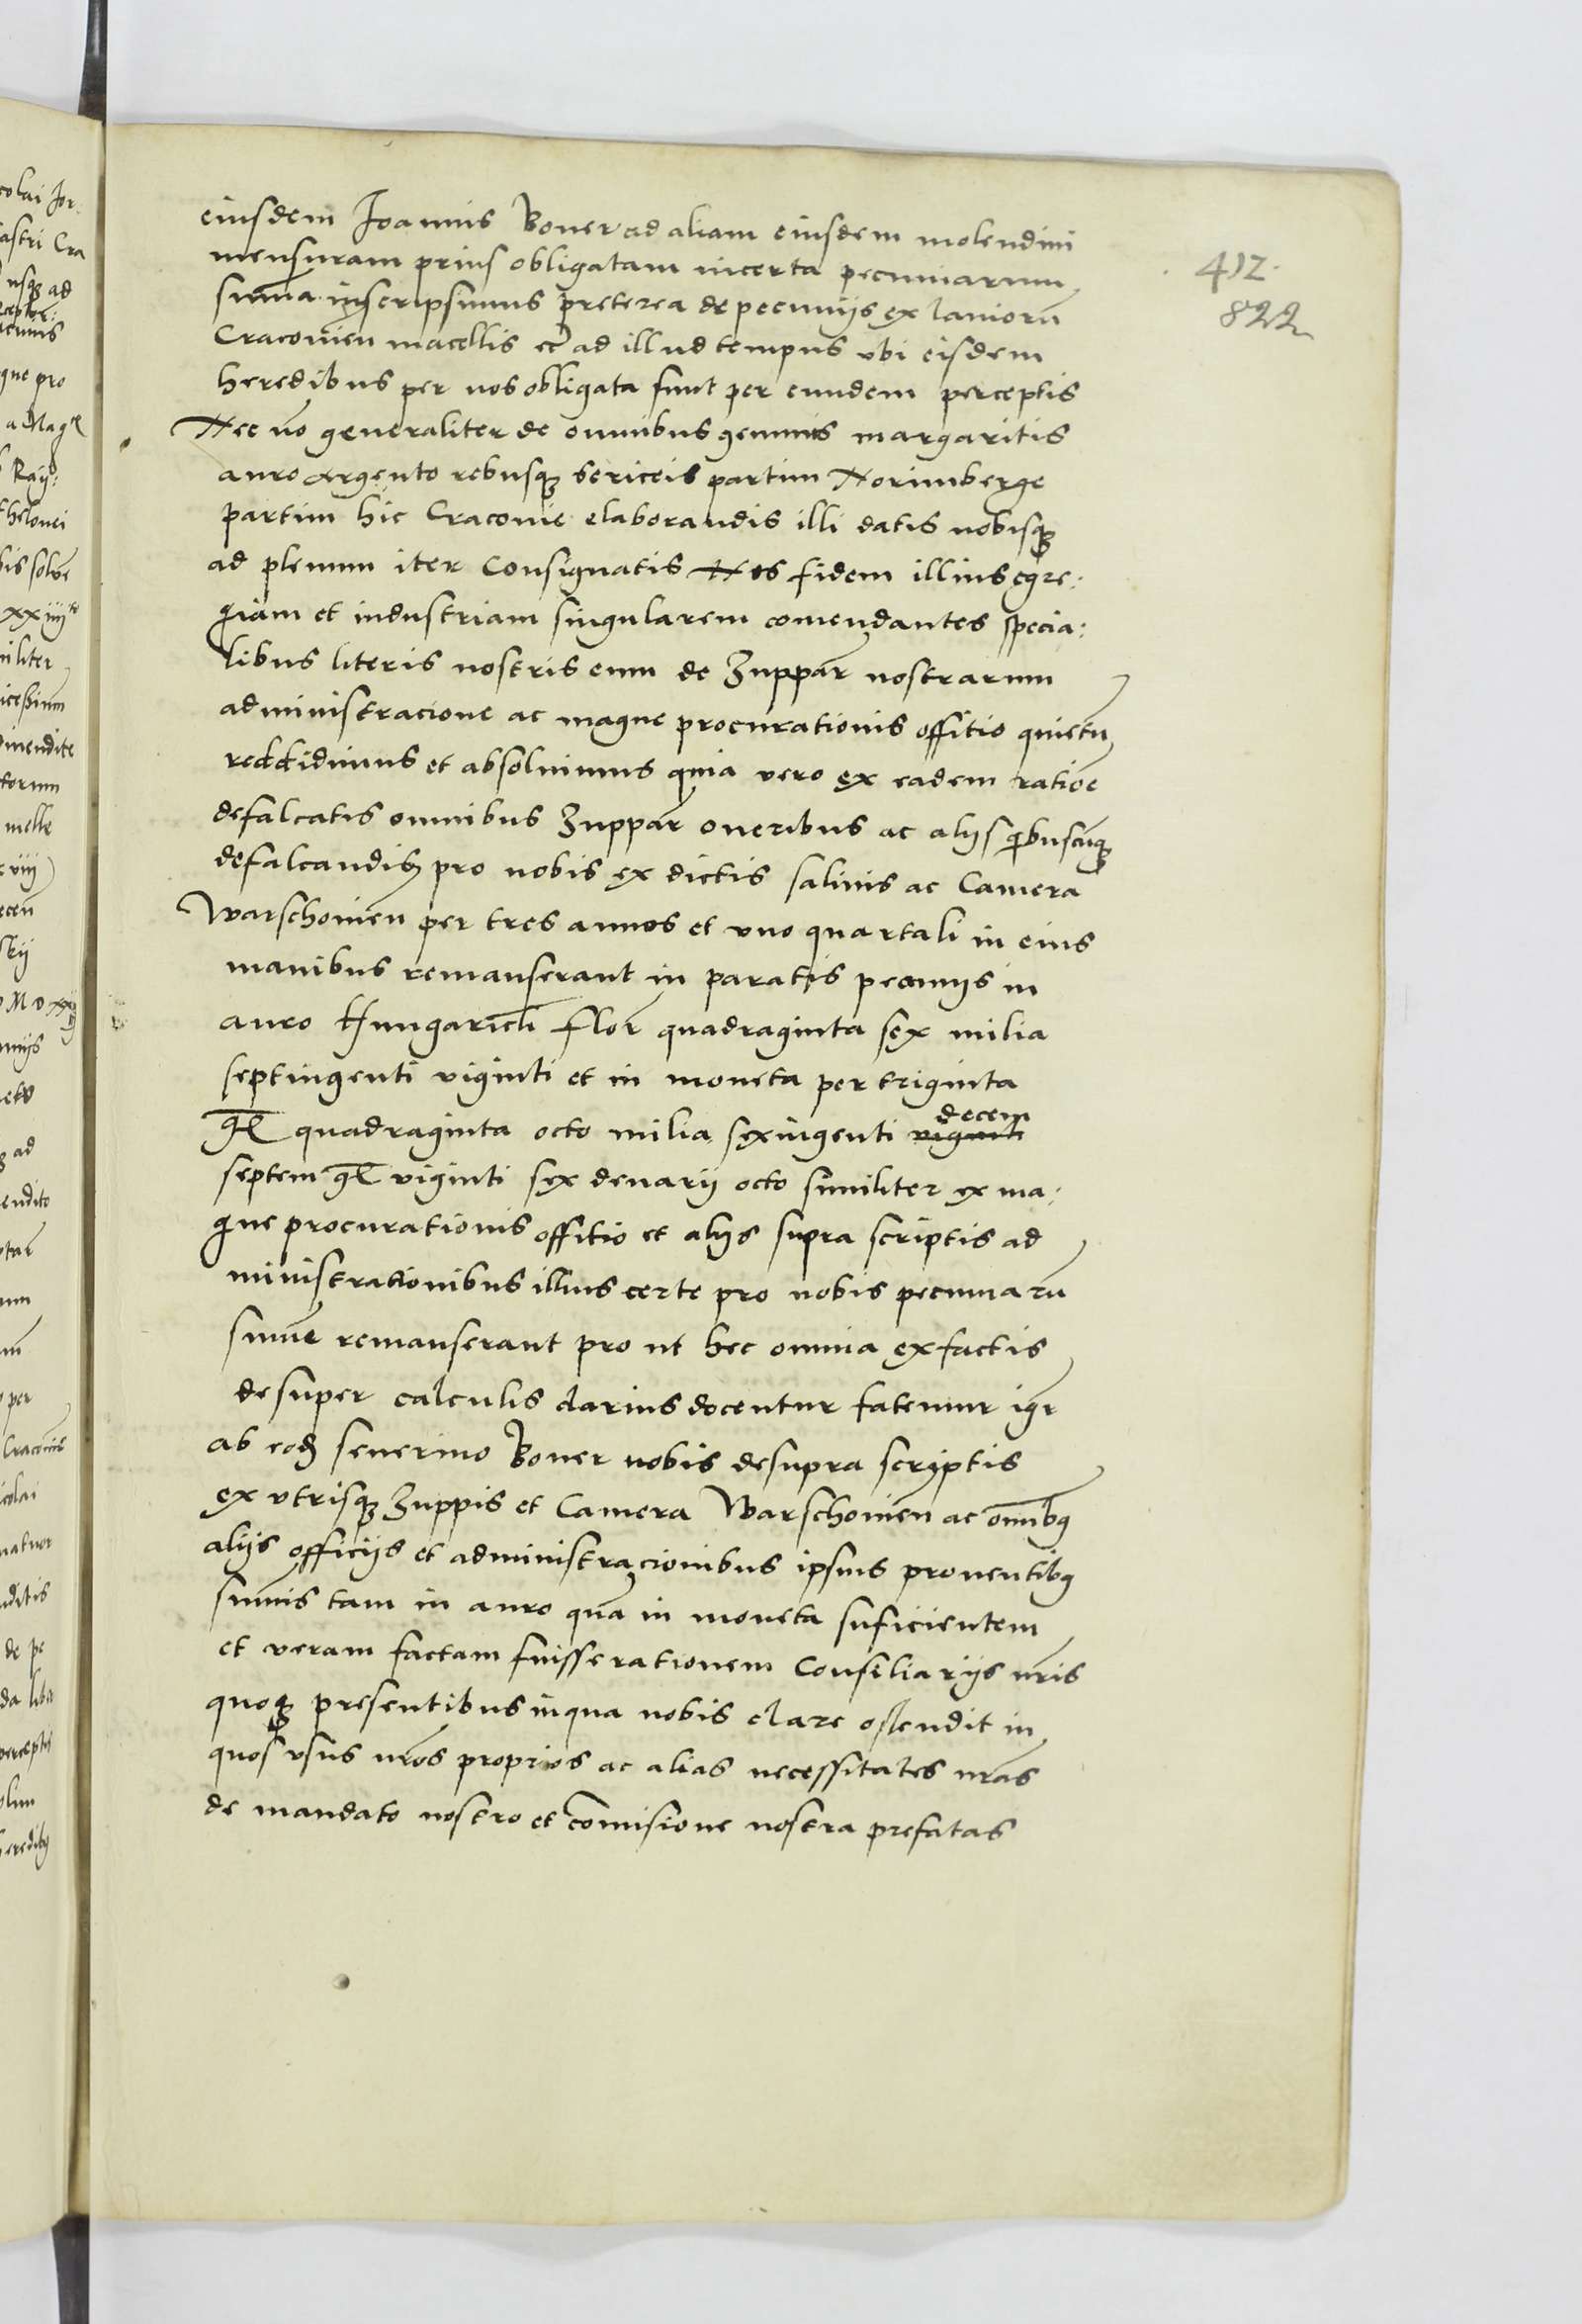 412
822
eiusdem Joannis Boner ad aliam eiusdem molendini
mensuram prius obligatam incerta pecuniarum
summa inscripsimus preterea de pecunijs ex laniorū
Cracovien̄ macellis et ad illud tempus vbi eisdem
heredibus per nos obligata sunt per eundem perceptis
Nec nō generaliter de omnibus gemmis margaritis
auro argento rebusqꝫ sericeis partim Norimberge
partim hic Cracovie elaborandis illi datis nobisqꝫ
ad plenum iter Consignatis Nos fidem illius egre:
giam et industriam singularem comendantes specia:
libus literis nostris eum de Zuppar̄ nostrarum
administracione ac magne procurationis offitio quietū
reddidimus et absolvimus quia vero ex eadem ratiōe
defalcatis omnibus Zuppar̄ oneribus ac alijs qibuscūqꝫ
defalcandisꝫ pro nobis ex dictis salinis ac Camera
Warschovien̄ per tres annos et vno quartali in eius
manibus remanserant in paratis pecunijs in
auro Hungaricli Flor̄ quadraginta sex milia
septingenti viginti et in moneta per triginta
gͬ quadraginta octo milia sexingenti viginti decem
septem gͬ viginti sex denarij octo similiter ex ma:
gne procurationis offitio et alijs supra scriptis ad
ministrationibus illius certe pro nobis pecuniarū
sum̄e remanserant pro ut hec omnia ex factis
desuper calculis clarius docentur fatemur igr̄
ab eodꝫ Severino Boner nobis desupra scriptis
ex vtrisqꝫ Zuppis et Camera Warschovien̄ ac om̄ibꝫ
alijs officijs et administracionibus ipsius proventibꝫ
sum̄is tam in auro quā in moneta suficientem
et veram factam fuisse rationem Consiliarijs nr̄is
quoqꝫ presentibus inqua nobis clare ostendit in
quos vsus nr̄os proprios ac alias necessitates nr̄as
de mandato nostro et comisione nostra prefatas